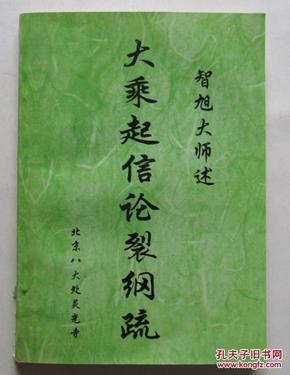 智旭大师述
大乘起信论裂纲疏
北京八大处灵光寺
孔夫子旧书网